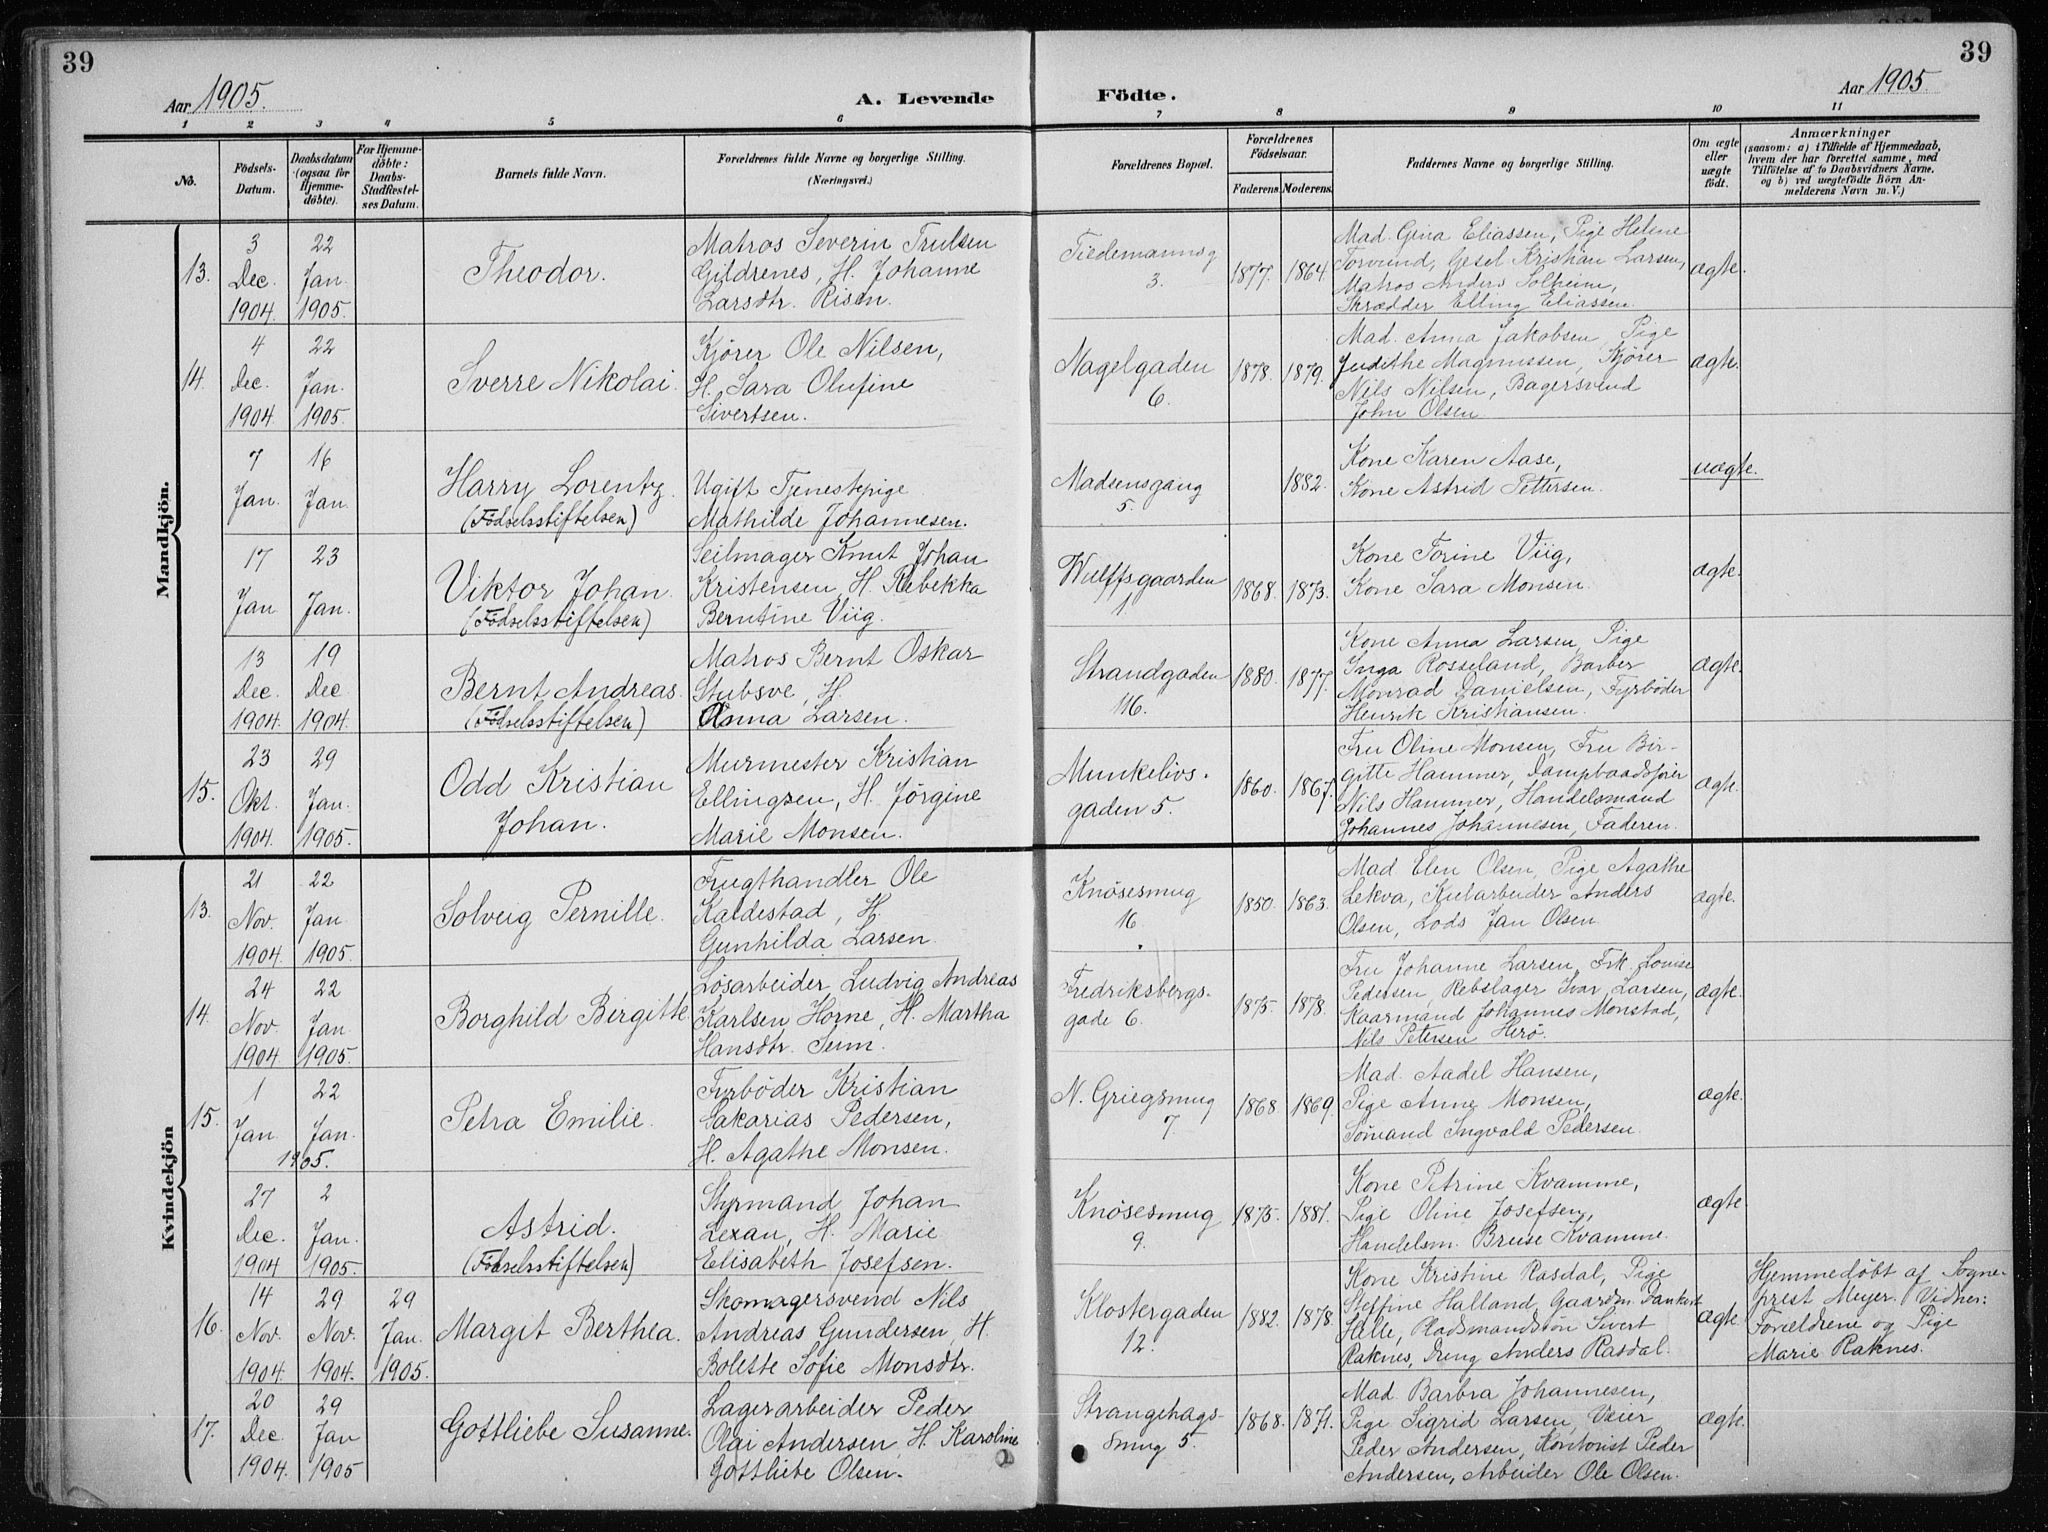 39
Aar 1905.
A. Levende
Födte.
Aar 1905.
39
1 2 3 4 5 6 7 8 9 10 11
No.
Födsels-Datum.
Daabsdatum (ogsaa for Hjemmedöbte).
For Hjemmedöbte: Daabs-Stadfæstelses Datum.
Barnets fulde Navn.
Forældrenes fulde Navne og borgerlige Stilling.
(Næringsvei.)
Forældrenes Bopæl.
Forældrenes Födselsaar.
Faderens. Moderens.
Faddernes Navne og borgerlige Stilling.
Om ægte eller uægte födt.
Anmærkninger
(saasom: a) i Tilfælde af Hjemmedaab, hvem der har forrettet samme, med Tilföielse af to Daabsvidners Navne, og b) ved uægtefödte Börn Anmelderens Navn m. V.)
Mandkjön.
13.
3 Dec. 1904.
22 Jan. 1905.
Theodor.
Matros Severin Trulsen
Gildrenes, H. Johanne
Larsdtr. Risen.
Tiedemannsg
3.
1877. 1864.
Mad. Gina Eliassen, Pige Helene
Torvund, Gesel Kristian Larsen,
Matros Anders Solheim,
Skrædder Elling Eliassen.
ægte.
14.
4 Dec. 1904.
22 Jan. 1905.
Sverre Nikolai.
Kjører Ole Nilsen,
H. Sara Olufine
Sivertsen.
Nagelgaden
6.
1878. 1879.
Mad. Anna Jakobsen, Pige
Judithe Magnussen, Kjører
Nils Nilsen, Bagersvend
John Olsen.
ægte.
7 Jan.
16 Jan.
Harry Lorentz.
(Fødselsstiftelsen)
Ugift Tjenestepige
Mathilde Johannesen.
Madsensgang
5.
1882.
Kone Karen Aase,
Kone Astrid Pettersen.
uægte.
17 Jan
23 Jan.
Viktor Johan.
(Fødselsstiftelsen)
Seilmager Knut Johan
Kristensen, H. Rebekka
Berntine Viig.
Wulffsgaarden
1
1868. 1873.
Kone Torine Viig,
Kone Sara Monsen.
ægte.
13 Dec. 1904.
19 Dec 1904.
Bernt Andreas.
(Fødselsstiftelsen)
Matros Bernt Oskar
Stubsve, H.
Anna Larsen.
Strandgaden
116.
1880. 1877.
Kone Anna Larsen, Pige
Inga Rosseland, Barber
Monrad Danielsen, Fyrbøder
Henrik Kristiansen.
ægte.
15.
23 Okt. 1904.
29 Jan. 1905.
Odd Kristian
Johan.
Murmester Kristian
Ellingsen, H. Jørgine
Marie Monsen.
Munkelivs-
gaden 5.
1860. 1867.
Fru Oline Monsen, Fru Bir-
gitte Hammer, Dampbaadsfører
Nils Hammer, Handelsmand
Johannes Johannesen, Faderen.
ægte.
Kvindekjön
13.
21 Nov. 1904.
22 Jan. 1905.
Solveig Pernille.
Frugthandler Ole
Kaldestad, H.
Gunhilda Larsen.
Knøsesmug
16.
1850. 1863.
Mad Elen Olsen, Pige Agathe
Lekva, Kularbeider Anders
Olsen, Lods Jan Olsen.
ægte.
14.
24 Nov. 1904
22 Jan 1905.
Borghild Birgitte.
Løsarbeider Ludvig Andreas
Karlsen Horne, H. Martha
Hansdtr. Seim.
Fredriksbergs-
gade 6.
1875. 1878.
Fru Johanne Larsen, Frk. Louise
Pedersen, Rebslager Ivar Larsen,
Kaarmand Johannes Monstad,
Nils Petersen Herø.
ægte.
15.
1 Jan
22 Jan.
1905.
Petra Emilie.
Fyrbøder Kristian
Sakarias Pedersen,
H. Agathe Monsen.
N. Griegsmug
7.
1868. 1869.
Mad. Aadel Hansen,
Pige Anne Monsen,
Sømand Ingvald Pedersen.
ægte.
27 Dec. 1904
2 Jan. 1905.
Astrid.
(Fødselsstiftelsen)
Styrmand Johan
Lexau, H. Marie
Elisabeth Josefsen.
Knøsesmug
9.
1875. 1881.
Kone Petrine Kvamme,
Pige Oline Josefsen,
Handelsm. Bruse Kvamme.
ægte.
16.
14 Nov. 1904
29 Nov. 1904.
29 Jan. 1905.
Margit Berthea.
Skomagersvend Nils
Andreas Gundersen, H.
Bolette Sofie Monsdtr.
Klostergaden
12.
1882. 1878.
Kone Kristine Rasdal, Pige
Steffine Halland, Gaardm. Dankert
Helle, Pladsmandssøn Sivert
Raknes, Dreng Anders Rasdal.
ægte.
Hjemmedøbt af Sogne-
prest Meyer. Vidner:
Forældrene og Pige
Marie Raknes.
17.
20 Dec. 1904.
29 Jan 1905
Gottliebe Susanne.
Lagerarbeider Peder
Olai Andersen, H. Karoline
Gottliebe Olsen.
Strangehags-
smug 5.
1868. 1871.
Mad. Barbra Johannesen,
Pige Sigrid Larsen, Veier
Peder Andersen, Kontorist Peder
Andersen, Arbeider Ole Olsen.
ægte.